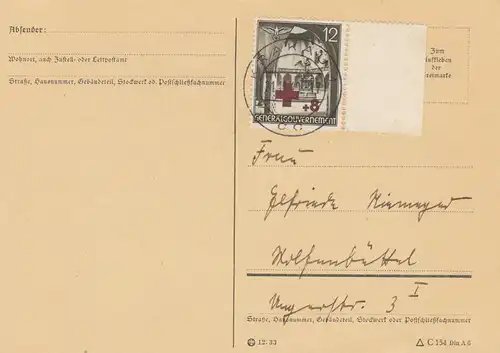 Absender:
Wohnort, auch Zustell- oder Leitpostamt
Straße, Hausnummer, Gebäudeteil, Stockwerk od. Postschließfachnummer
12
+8
GENERALGOUVERNEMENT
Zum
Aufkleben
der
Freimarke
Frau
Elfriede Niemeyer
Wolfenbüttel
Ungerstr. 3 I
Straße, Hausnummer, Gebäudeteil, Stockwerk oder Postschließfachnummer
12. 33
C 154 Din A 6